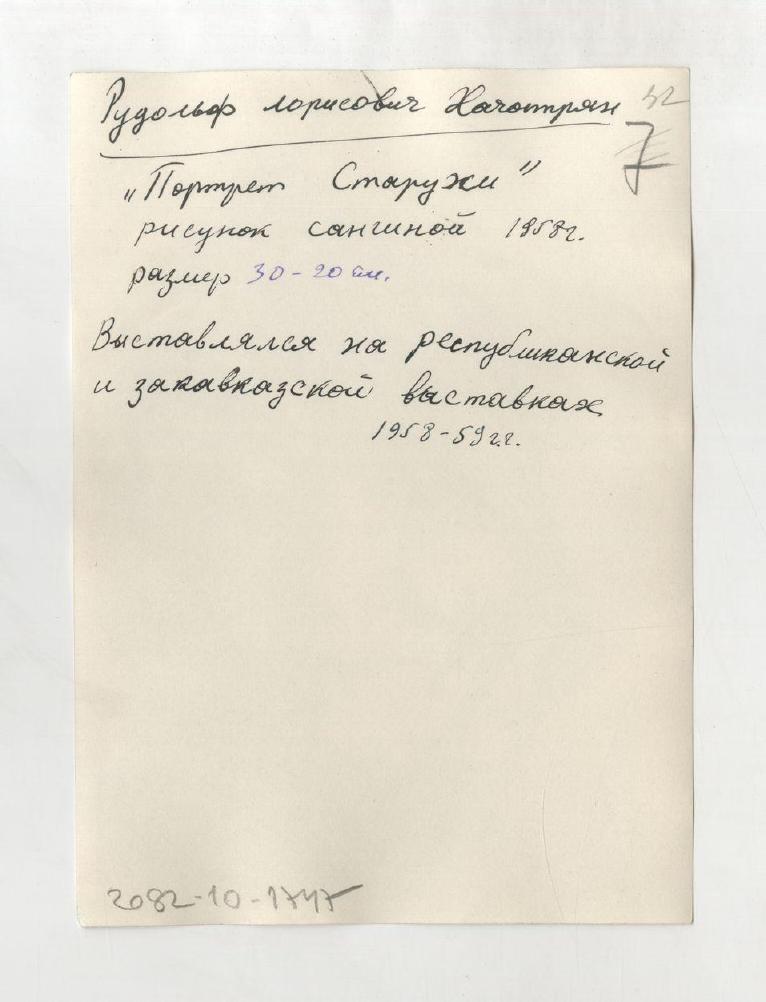 Рудольф Лорисович Хачатрян 32
7
„Портрет Старухи”
рисунок сангиной 1958г.
размер 30-20 см.
Выставлялся на республиканской
и закавказской выставках
1958-59г.г.
2082-10-1747